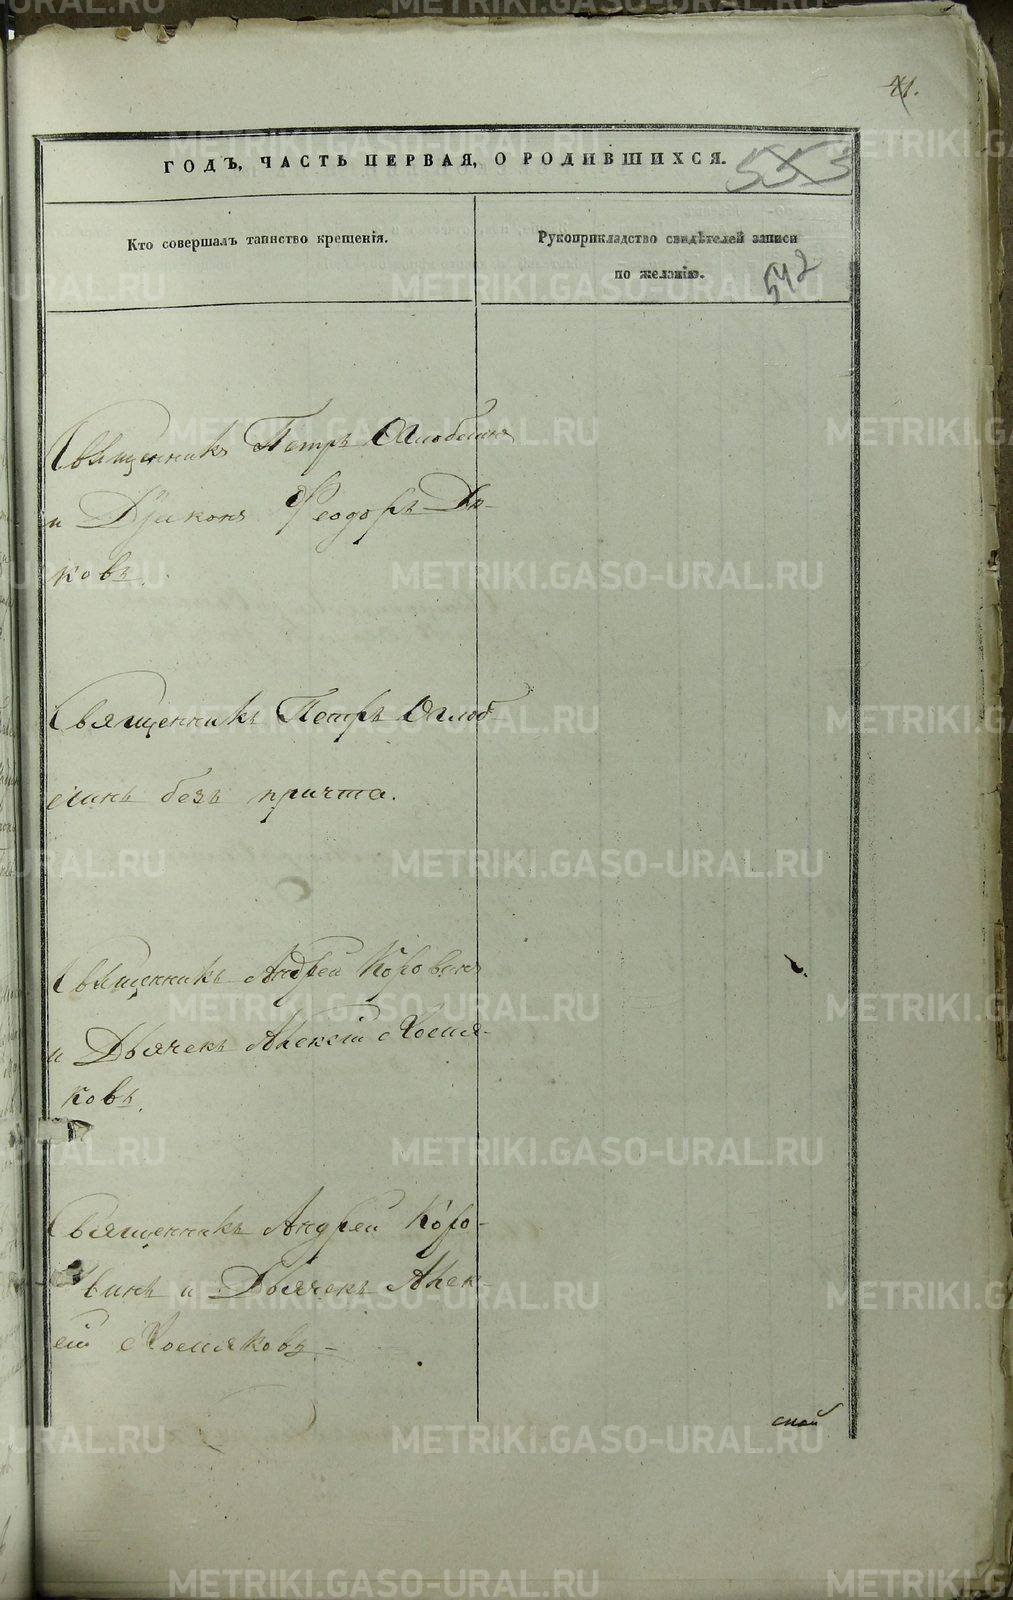 41.
ГОДЪ, ЧАСТЬ ПЕРВАЯ, О РОДИВШИХСЯ.
553
Кто совершалъ таинство крещенія.
Рукоприкладство свидѣтелей записи
по желанію.
542
Священникъ Петръ Оглоблинъ
и Дiаконъ Феодоръ Ды-
ковъ.
Священникъ Петръ Оглоб-
линъ безъ причта.
Священникъ Андрей Коровинъ
и Дьячекъ Алексiй Хомя-
ковъ.
Священникъ Андрей Коро-
винъ и Дьячекъ Алек-
сiй Хомяковъ.
METRIKI.GASO-URAL.RU